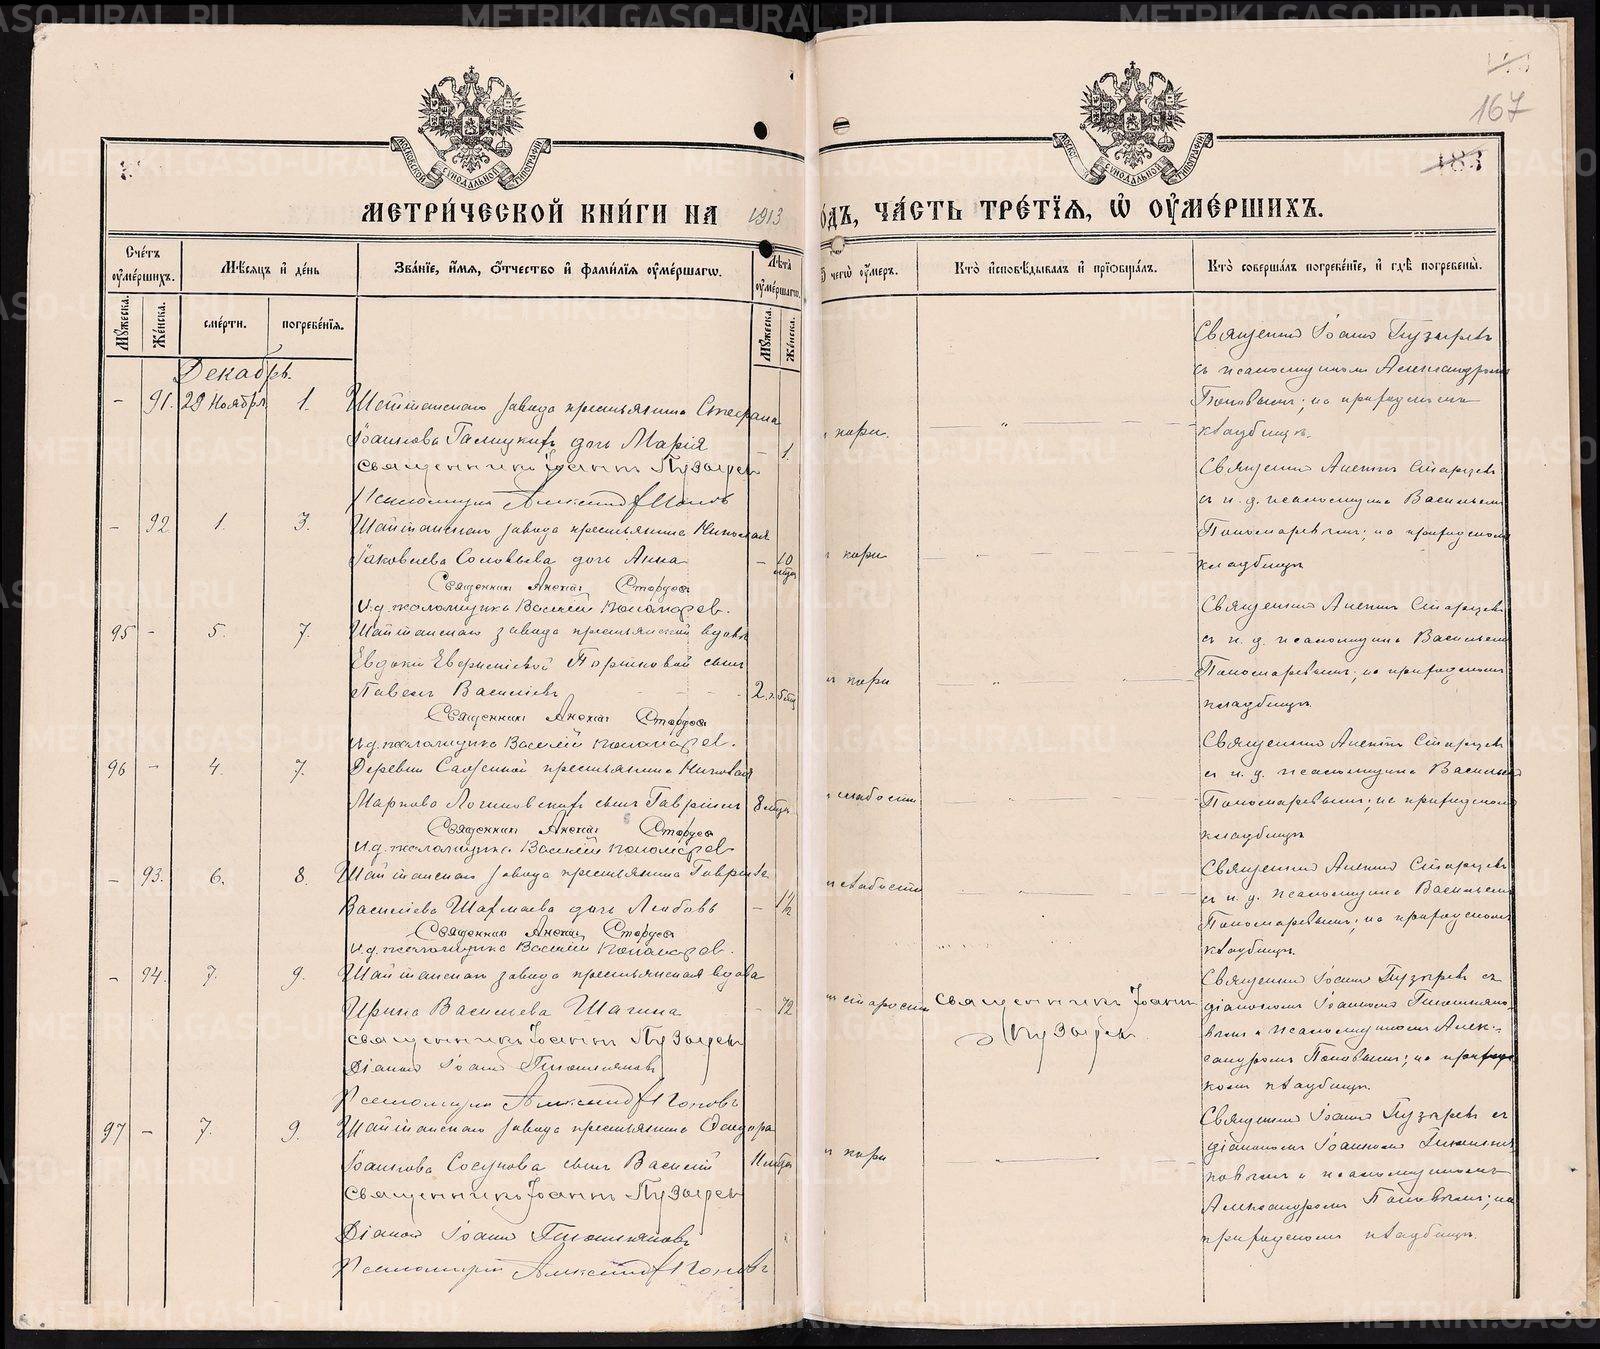 167
183
МЕТРИ́ЧЕСКОЙ КНИ́ГИ НА 1913
ѻ́дъ, ЧА́СТЬ ТРЕ́ТЇѦ, Ѡ҆ ОУ҆МЕ́РШИХЪ.
Сче́тъ оу҆ме́ршихъ.
Мѣ́сяцъ и҆ де́нь
Зва́нїе, и҆́мѧ, ѻ҆́тчество и҆ фамилїѧ оу҆ме́ршагѡ.
Лѣ́та оу҆ме́ршагѡ.
ѿ чегѡ̀ оу҆́меръ.
Кто̀ и҆сповѣ́дывалъ и҆ прїѡбща́лъ.
Кто̀ соверша́лъ погребе́нїе, и҆ гдѣ̀ погребены̀.
Мꙋ́жеска.
Же́нска.
сме́рти.
погребе́нїѧ.
Мꙋ́жеска.
Же́нска.
Декабрь.
- 91. 29 Ноября 1. Шайтанскаго завода крестьянина Стефана
Іоаннова Галицкихъ дочь Марія - 1.
кори.
Священникъ Іоаннъ Пузыревъ
Псаломщикъ Александръ Поповъ
Священникъ Іоаннъ Пузыревъ
съ псаломщикомъ Александромъ
Поповымъ; на приходскомъ
кладбищѣ.
- 92. 1. 3. Шайтанскаго завода крестьянина Николая
Іаковлева Соловьева дочь Анна - 10 мѣсц
кори
Священникъ Алексій Старцевъ
И.д. псаломщика Василій Пономарев.
Священникъ Алексій Старцевъ
съ и. д. псаломщика Василіемъ
Пономаревымъ; на приходскомъ
кладбищѣ
95 - 5. 7. Шайтанскаго завода крестьянской вдовы
Евдокіи Евфиміевой Поршновой сынъ
Павелъ Василіевъ 2 г.
кори
Священникъ Алексій Старцевъ
И.д. псаломщика Василій Пономарев.
Священникъ Алексій Старцевъ
съ и. д. псаломщика Василіемъ
Пономаревымъ; на приходскомъ
кладбищѣ.
96 - 4. 7. Деревни крестьянина Николая
Маркова Логиновскихъ сынъ Гавріилъ 8 мѣсц
слабости
Священникъ Алексій Старцевъ
И.д. псаломщика Василій Пономарев
Священникъ Алексій Старцевъ
съ и. д. псаломщика Василіемъ
Пономаревымъ; на приходскомъ
кладбищѣ
- 93. 6. 8. Шайтанскаго завода крестьянина Гавріила
Василіева Шахмаева дочь Любовь -
слабости
Священникъ Алексій Старцевъ
И.д. псаломщика Василій Пономарев.
Священникъ Алексій Старцевъ
съ и. д. псаломщика Василіемъ
Пономаревымъ; на приходскомъ
кладбищѣ.
- 94. 7. 9. Шайтанскаго завода крестьянская вдова
Ирина Василіева Шагина - 72
старости
Священникъ Іоаннъ Пузыревъ
Діаконъ Іоаннъ
Псаломщикъ Александръ Поповъ
Священникъ Іоаннъ
Пузыревъ.
Священникъ Іоаннъ Пузыревъ съ
діакономъ Іоанномъ
вымъ и псаломщикомъ Алек-
сандромъ Поповымъ; на приход
скомъ кладбищѣ.
97 - 7. 9. Шайтанскаго завода крестьянина Ѳеодора
Іоаннова Сосунова сынъ Василій 11 мѣсц
кори
Священникъ Іоаннъ Пузыревъ
Діаконъ Іоаннъ
Псаломщикъ Александръ Поповъ
Священникъ Іоаннъ Пузыревъ съ
діакономъ Іоанномъ
новымъ и псаломщикомъ
Александромъ Поповымъ; на
приходскомъ кладбищѣ.
METRIKI.GASO-URAL.RU